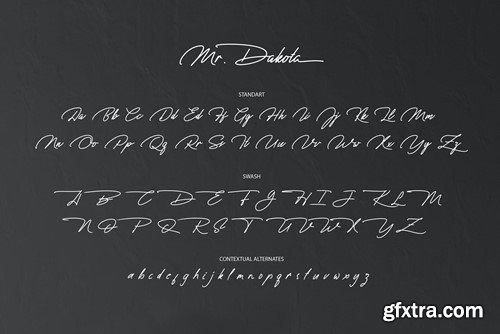 Mr. Dakota
STANDART
Aa Bb Cc Dd Ee Ff Gg Hh Ii Jj Kk Ll Mm
Nn Oo Pp Qq Rr Ss Tt Uu Vv Ww Xx Yy Zz
SWASH
A B C D E F G H I J K L M
N O P Q R S T U V W X Y Z
CONTEXTUAL ALTERNATES
a b c d e f g h i j k l m n o p q r s t u v w x y z
gfxtra.com